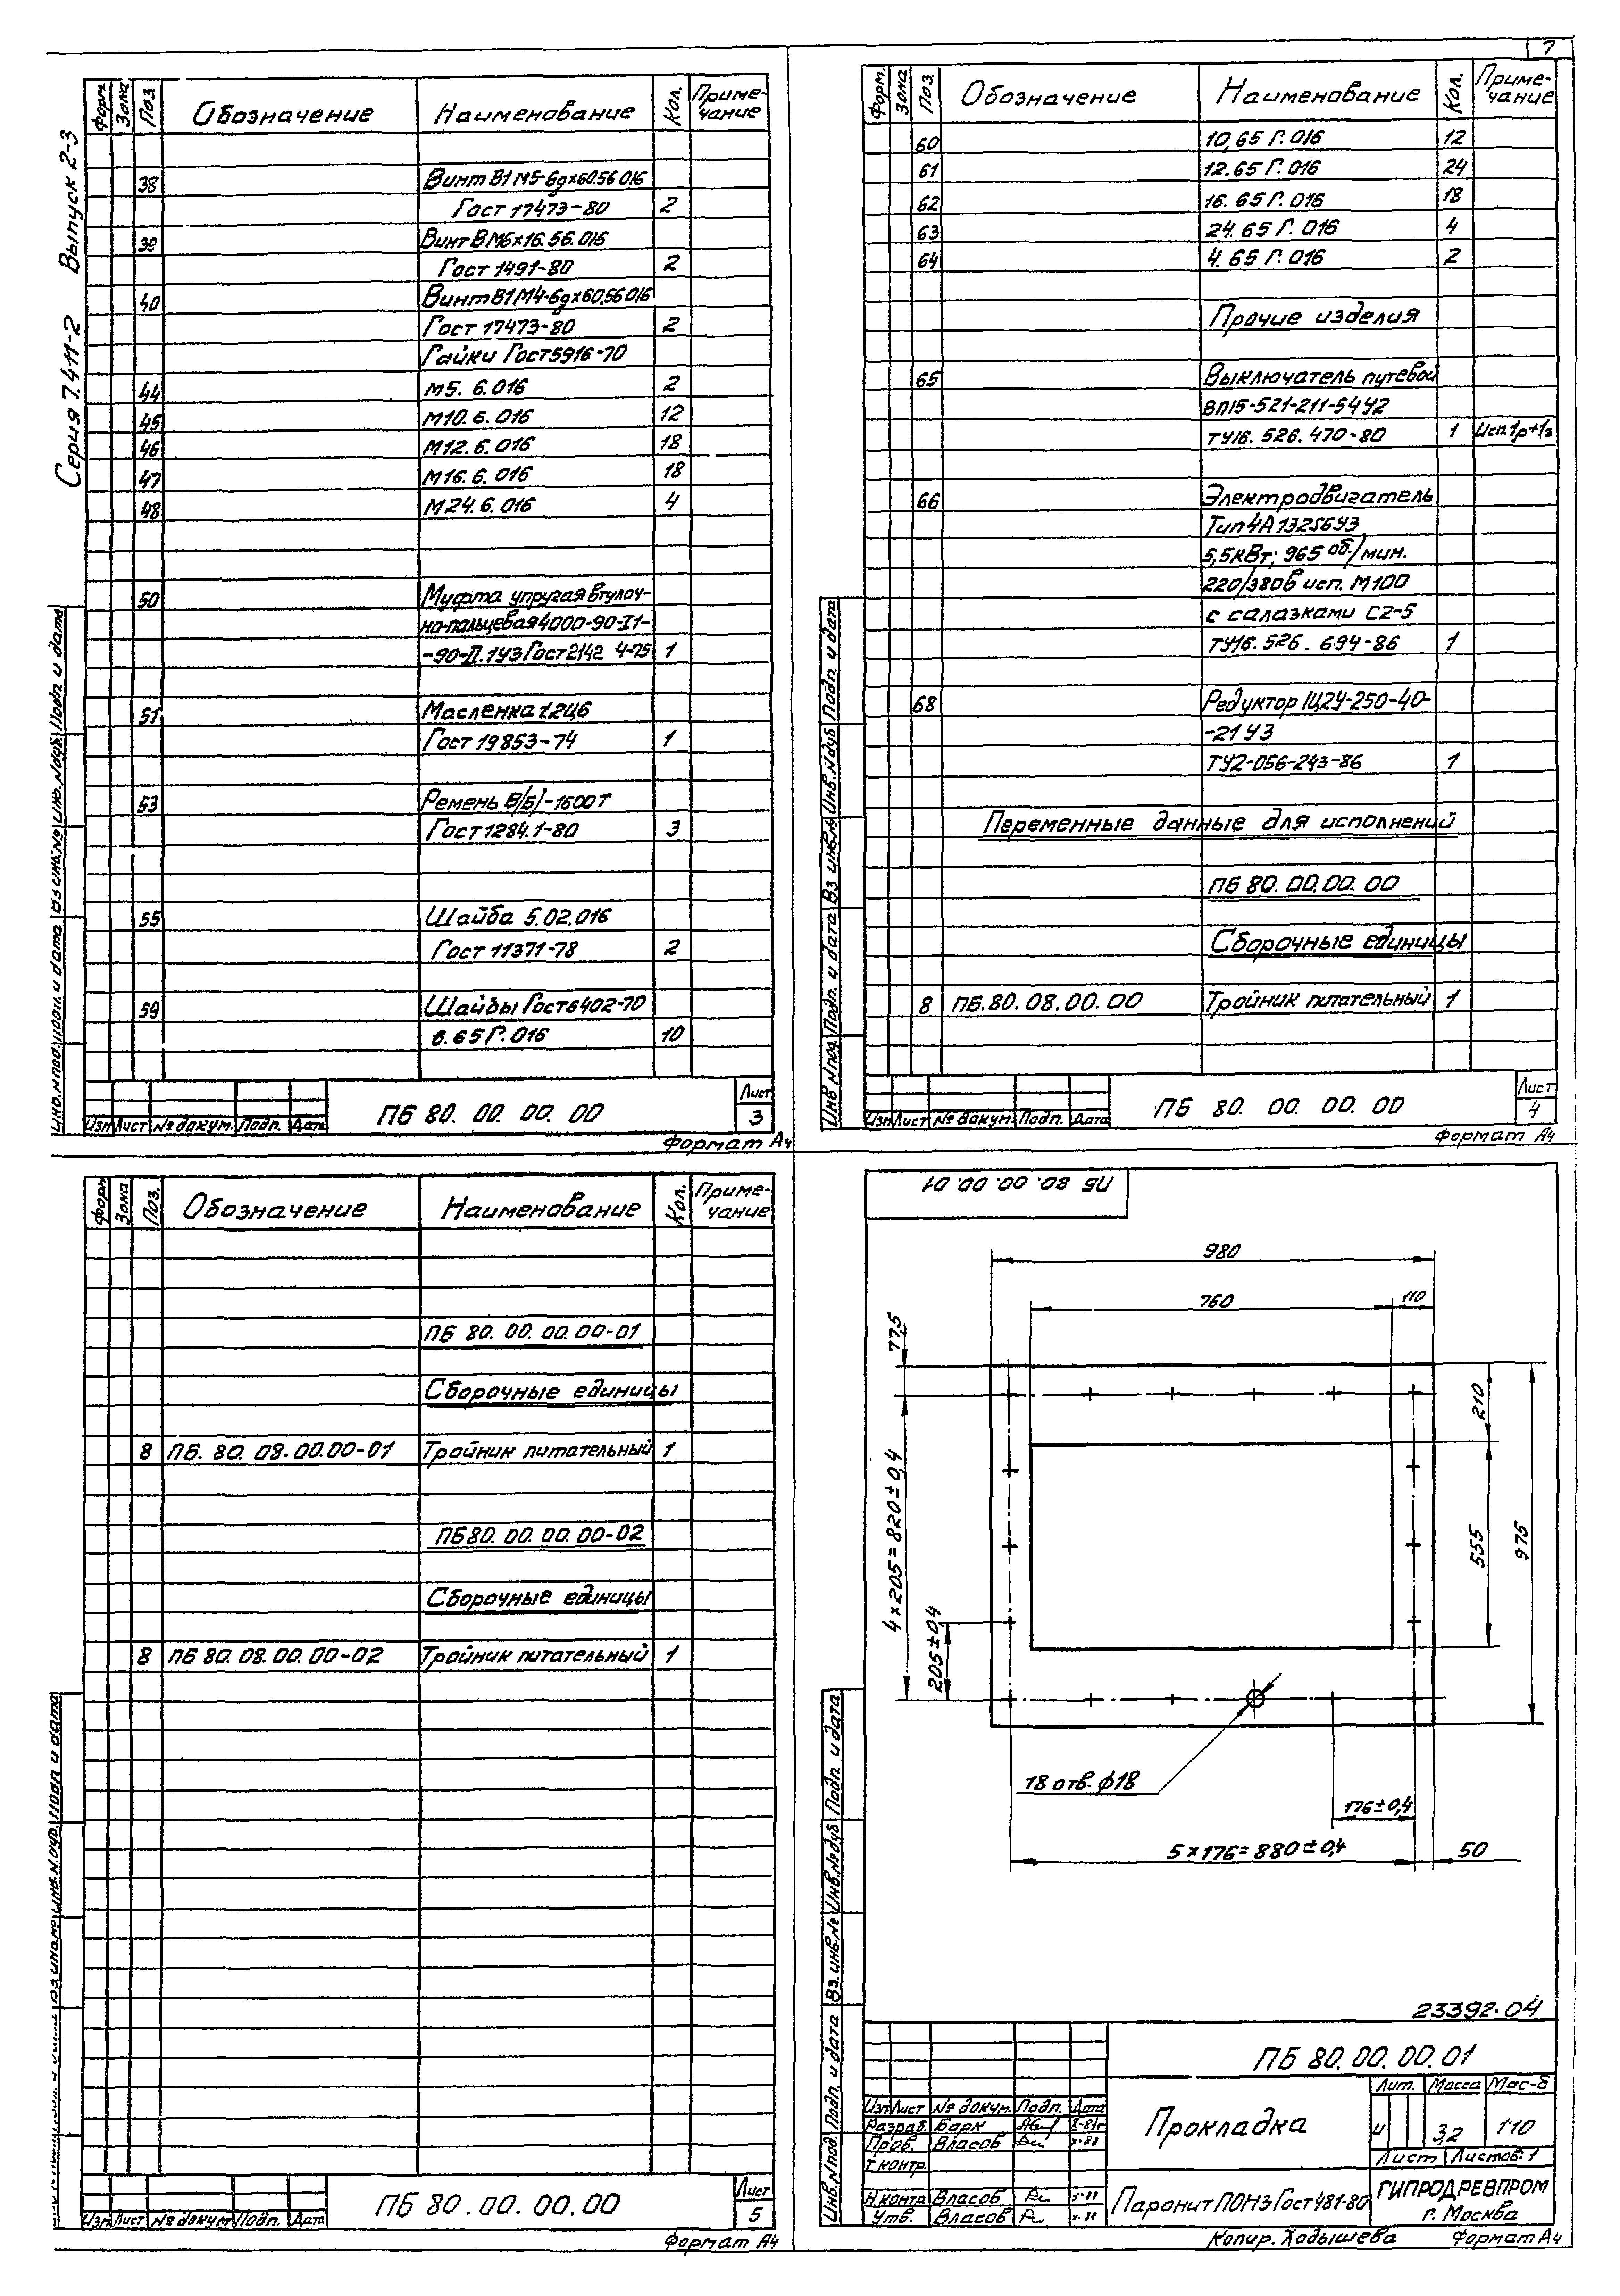 7
Серия 7.411-2 Выпуск 2-3
Форм. Зона Поз. Обозначение Наименование Кол. Приме-
чание
38 Винт В1М5-6gх60.56 016
Гост 17473-80 2
39 Винт ВМ6х16.56.016
Гост 1491-80 2
40 Винт В1М4-6gх60.56 016
Гост 17473-80 2
Гайки Гост5916-70
44 М5. 6.016 2
45 М10. 6.016 12
46 М12. 6.016 18
47 М16. 6. 016 18
48 М24. 6. 016 4
50 Муфта упругая втулоч-
но-пальцевая 4000-90-I1-
-90-II.1У3 Гост2142 4-75 1
51 Масленка 1.2Ц6
Гост 19853-74 1
53 Ремень В(Б)-1600Т
Гост 1284.1-80 3
55 Шайба 5.02.016
Гост 11371-78 2
59 Шайбы Гост6402-70
6. 65Г. 016 10
Изм Лист № докум. Подп. Дата
ПБ 80. 00. 00. 00
Лист
3
Формат А4
Форм. Зона Поз. Обозначение Наименование Кол. Приме-
чание
60 10,65 Г. 016 12
61 12.65 Г. 016 24
62 16. 65 Г. 016 18
63 24. 65 Г. 016 4
64 4. 65 Г. 016 2
Прочие изделия
65 Выключатель путевой
ВП15-521-211-54У2
ТУ16. 526. 470-80 1 Исп.1р+1з
66 Электродвигатель
Тип 4А132S6У3
5,5кВт; 965 об./мин.
220/380в исп. М100
с салазками С2-5
ТУ16. 526. 694-86 1
68 Редуктор 1Ц2У-250-40-
-21 У3
ТУ2-056-243-86 1
Переменные данные для исполнений
ПБ 80. 00. 00. 00
Сборочные единицы
8 ПБ. 80. 08. 00. 00 Тройник питательный 1
Инв № под. Подп. и дата Вз. инв. № Инв. № дуб Подп. и дата
Изм Лист № докум. Подп. Дата
ПБ 80. 00. 00. 00
Лист
4
Формат А4
Форм Зона Поз. Обозначение Наименование Кол. Приме-
чание
ПБ 80. 00. 00. 00-01
Сборочные единицы
8 ПБ. 80. 08. 00.00-01 Тройник питательный 1
ПБ80. 00. 00. 00-02
Сборочные единицы
8 ПБ 80. 08. 00. 00-02 Тройник питательный 1
Изм Лист № докум Подп. Дата
ПБ 80. 00. 00. 00
Лист
5
Формат А4
ПБ 80. 00. 00. 01
980
760 110
77,5
210
4×205=820±0,4
555
975
205±0,4
18 отв. ф18
176±0,4
5×176=880±0,4 50
23392-04
Инв. № под. Подп. и дата Вз. инв. № Инв. № дуб Подп. и дата
ПБ 80. 00. 00. 01
Изм Лист № докум. Подп. Дата
Разраб. Барк
Пров. Власов
Т.контр.
Н.контр Власов
Утв. Власов
Прокладка
Лит. Масса Мас-б
и 3,2 1:10
Лист Листов 1
Паронит ПОН3 Гост 481-80
ГИПРОДРЕВПРОМ
г. Москва
Копир. Ходышева Формат А4